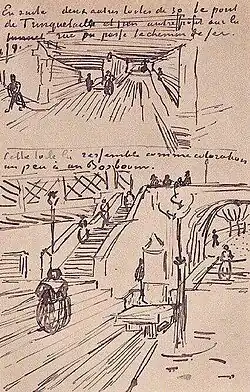 Ensuite deux autres toiles de 30 le pont
de Trinquetaille et un autre pont sur la
rue où passe le chemin de fer.
Cette toile là ressemble comme coloration
un peu à un Bosboom.